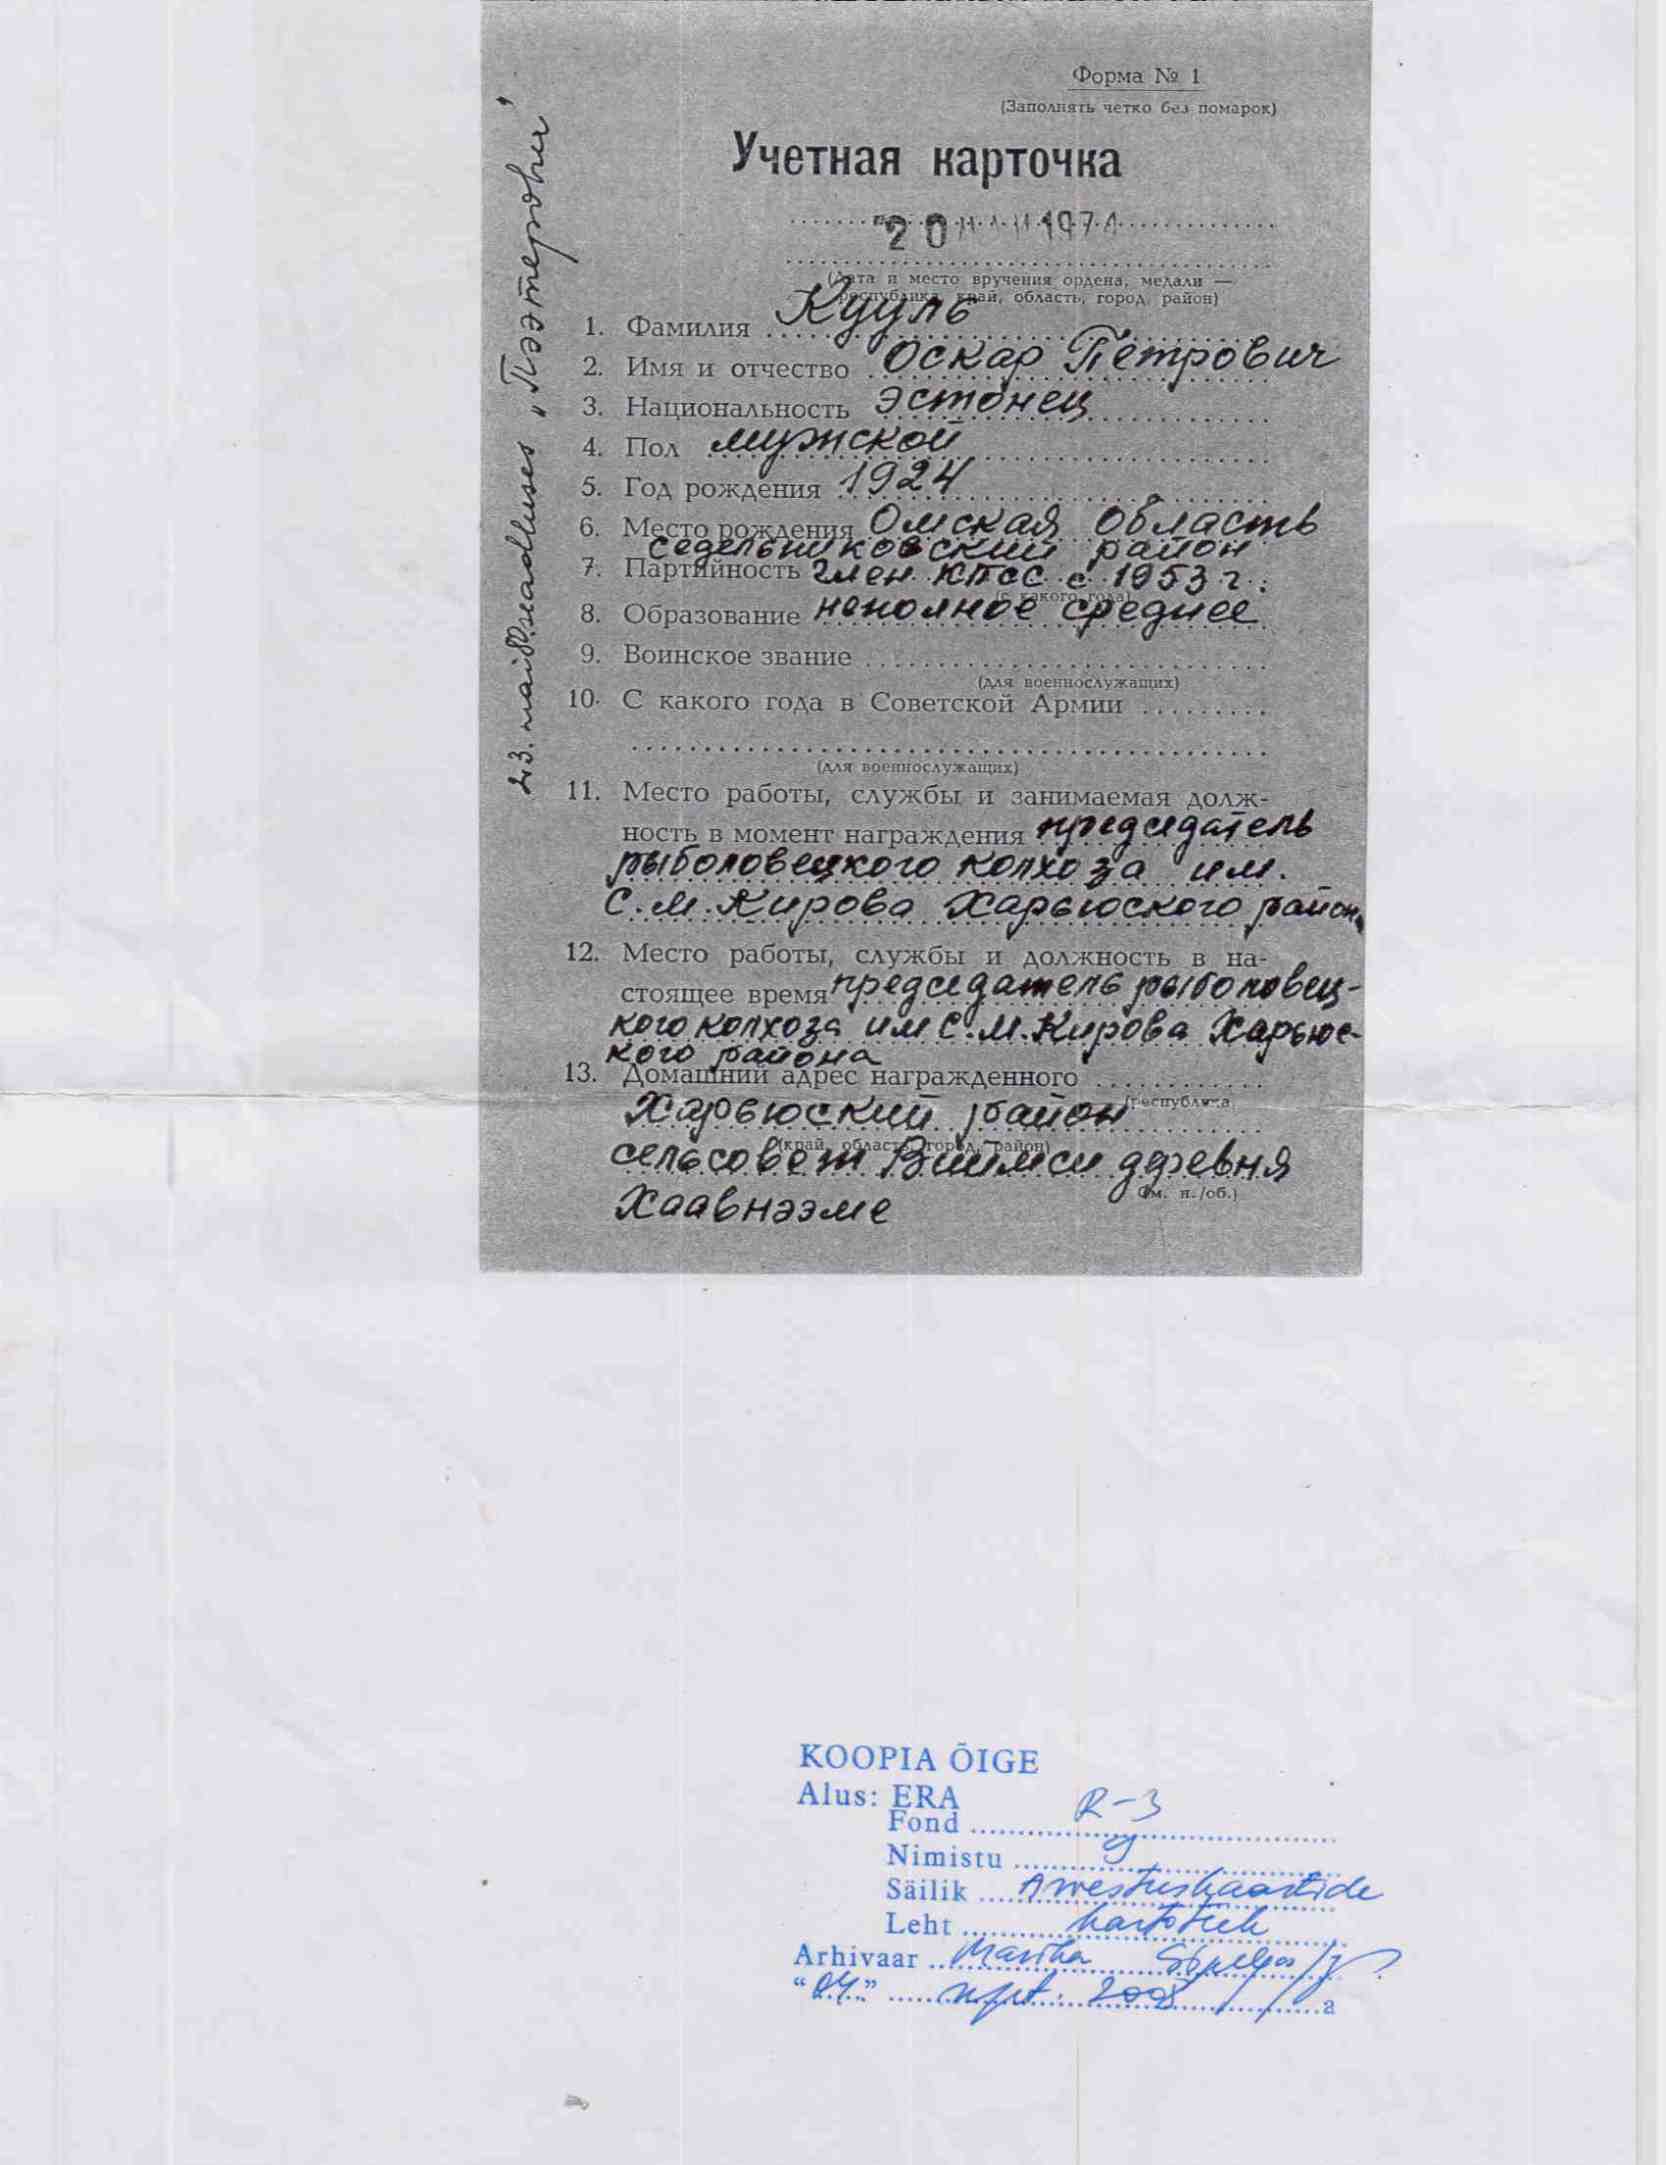 Форма № 1
(Заполнять четко без помарок)
Учетная карточка
"20 1971
(Дата и место вручения ордена, медали —
республика, край, область, город, район)
1. Фамилия Кууль
2. Имя и отчество Оскар Петрович
3. Национальность эстонец
4. Пол мужской
5. Год рождения 1924
6. Место рождения Омская область
Седельниковский район
7. Партийность член КПСС с 1953 г.
(с какого года)
8. Образование неполное среднее
9. Воинское звание
(для военнослужащих)
10. С какого года в Советской Армии
(для военнослужащих)
11. Место работы, службы и занимаемая долж-
ность в момент награждения председатель
рыболовецкого колхоза им.
С.М.Кирова Харьюского район.
12. Место работы, службы и должность в на-
стоящее время председатель рыболовец-
кого колхоза им С.М.Кирова Харьюс-
кого района
13. Домашний адрес награжденного
(республика,
Харьюский район
(край, область, город, район)
сельсовет Виимси деревня
(См. н./об.)
Хаавнээме
"Пээтерович"
KOOPIA ÕIGE
Alus: ERA
Fond R-3
Nimistu 9
Säilik Arvestuskaartide
Leht kartoteek
Arhivaar
"04." sept. 2008 a